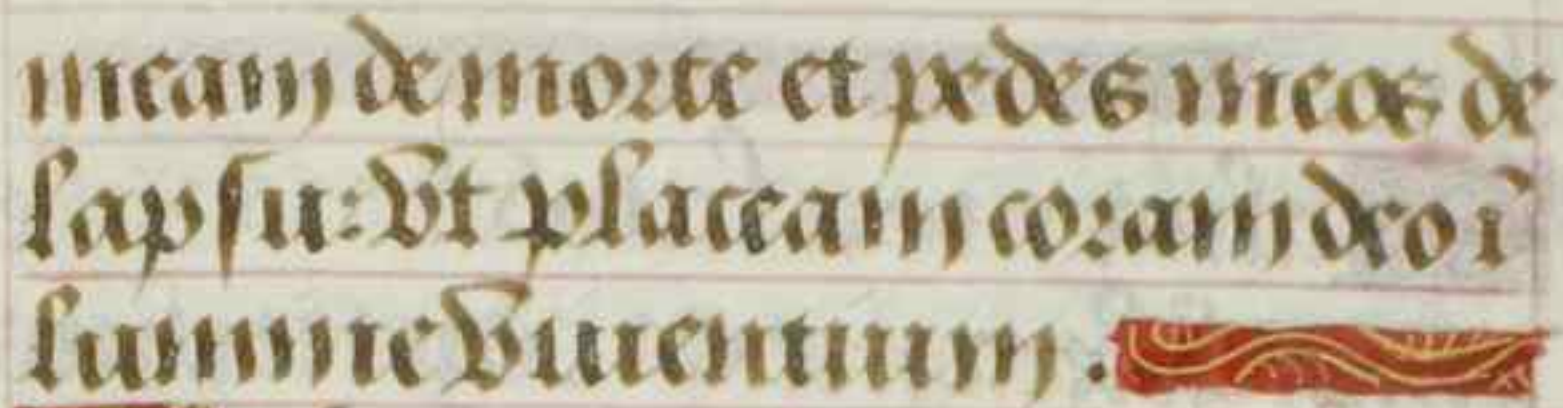 meam de morte et pedes meos de
lapsu: vt placeam coram deo ī
lumine viuentium.